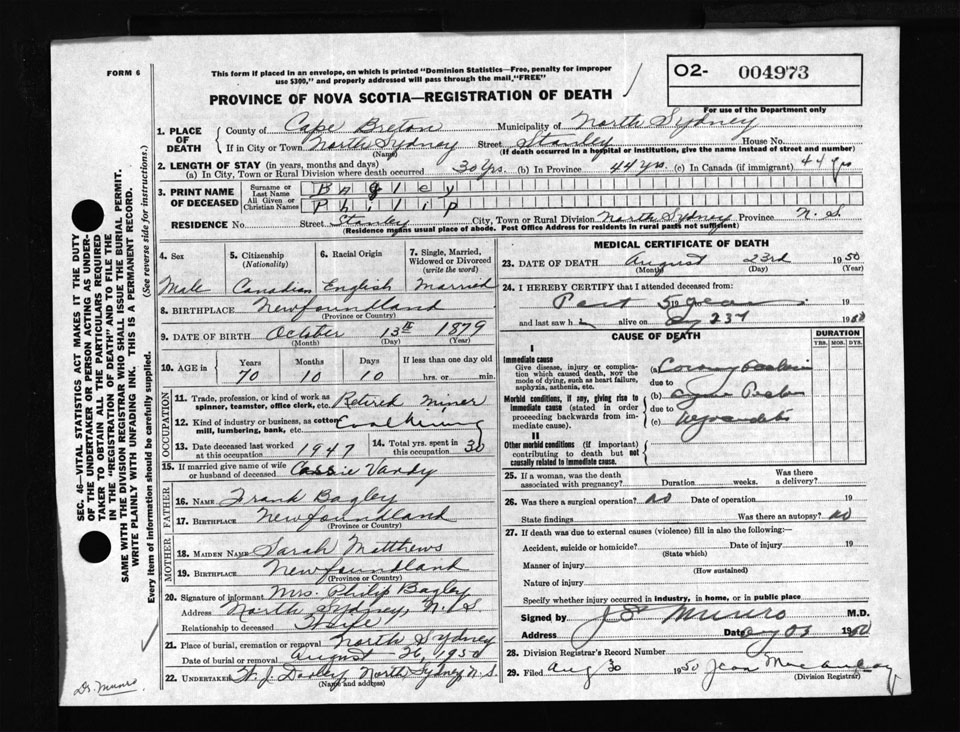 FORM 6
This form if placed in an envelope, on which is printed "Dominion Statistics—Free, penalty for improper
use $300," and properly addressed will pass through the mail, "FREE"
PROVINCE OF NOVA SCOTIA—REGISTRATION OF DEATH
O2- 004973
For use of the Department only
1. PLACE OF DEATH { County of Cape Breton Municipality of North Sydney
If in City or Town North Sydney Street Stanley House No.
(Name) (If death occurred in a hospital or institution, give the name instead of street and number)
2. LENGTH OF STAY (in years, months and days)
(a) In City, Town or Rural Division where death occurred 30 Yrs. (b) In Province 44 yrs. (c) In Canada (if immigrant) 44 yrs
3. PRINT NAME OF DECEASED { Surname or Last Name Bagley
All Given or Christian Names Philip
RESIDENCE No. Street Stanley City, Town or Rural Division North Sydney Province N. S.
(Residence means usual place of abode. Post Office Address for residents in rural parts not sufficient)
4. Sex 5. Citizenship (Nationality) 6. Racial Origin 7. Single, Married, Widowed or Divorced (write the word)
Male Canadian English Married
8. BIRTHPLACE Newfoundland
(Province or Country)
9. DATE OF BIRTH October 13th 1879
(Month) (Day) (Year)
10. AGE in { Years Months Days If less than one day old
70 10 10 hrs. or min.
OCCUPATION
11. Trade, profession, or kind of work as
spinner, teamster, office clerk, etc. Retired Miner
12. Kind of industry or business, as cotton
mill, lumbering, bank, etc. Coal Mining
13. Date deceased last worked
at this occupation 1947
14. Total yrs. spent in
this occupation 30
15. If married give name of wife
or husband of deceased Cassie Vardy
FATHER
16. NAME Frank Bagley
17. BIRTHPLACE Newfoundland
(Province or Country)
MOTHER
18. MAIDEN NAME Sarah Matthews
19. BIRTHPLACE Newfoundland
(Province or Country)
20. Signature of informant Mrs. Philip Bagley
Address North Sydney, N. S.
Relationship to deceased Wife
21. Place of burial, cremation or removal North Sydney
Date of burial or removal August 26, 1950
22. UNDERTAKER W. J. Dooley North Sydney N. S.
(Name and address)
MEDICAL CERTIFICATE OF DEATH
23. DATE OF DEATH August 23rd 1950
(Month) (Day) (Year)
24. I HEREBY CERTIFY that I attended deceased from:
Past 5 years 19
and last saw h alive on 19
CAUSE OF DEATH
DURATION
YRS. MOS. DYS.
I
Immediate cause
Give disease, injury or complication which caused death, NOT the mode of dying, such as heart failure, asphyxia, asthenia, etc.
(a)
due to
Morbid conditions, if any, giving rise to immediate cause (stated in order proceeding backwards from immediate cause).
(b)
due to
(c)
II
Other morbid conditions (if important) contributing to death but not causally related to immediate cause.
25. If a woman, was the death associated with pregnancy? Duration weeks. Was there a delivery?
26. Was there a surgical operation? No Date of operation 19
State findings Was there an autopsy? No
27. If death was due to external causes (violence) fill in also the following:—
Accident, suicide or homicide? Date of injury 19
(State which)
Manner of injury
(How sustained)
Nature of injury
Specify whether injury occurred in industry, in home, or in public place
Signed by Munro M.D.
Address Date 1950
28. Division Registrar's Record Number
29. Filed Aug 30 1950
(Division Registrar)
SEC. 46—VITAL STATISTICS ACT MAKES IT THE DUTY
OF THE UNDERTAKER OR PERSON ACTING AS UNDER-
TAKER TO OBTAIN ALL THE PARTICULARS REQUIRED
IN THE "REGISTRATION OF DEATH" AND TO FILE THE
SAME WITH THE DIVISION REGISTRAR WHO SHALL ISSUE THE BURIAL PERMIT.
WRITE PLAINLY WITH UNFADING INK. THIS IS A PERMANENT RECORD.
Every item of information should be carefully supplied. (See reverse side for instructions.)
Dr. Munro